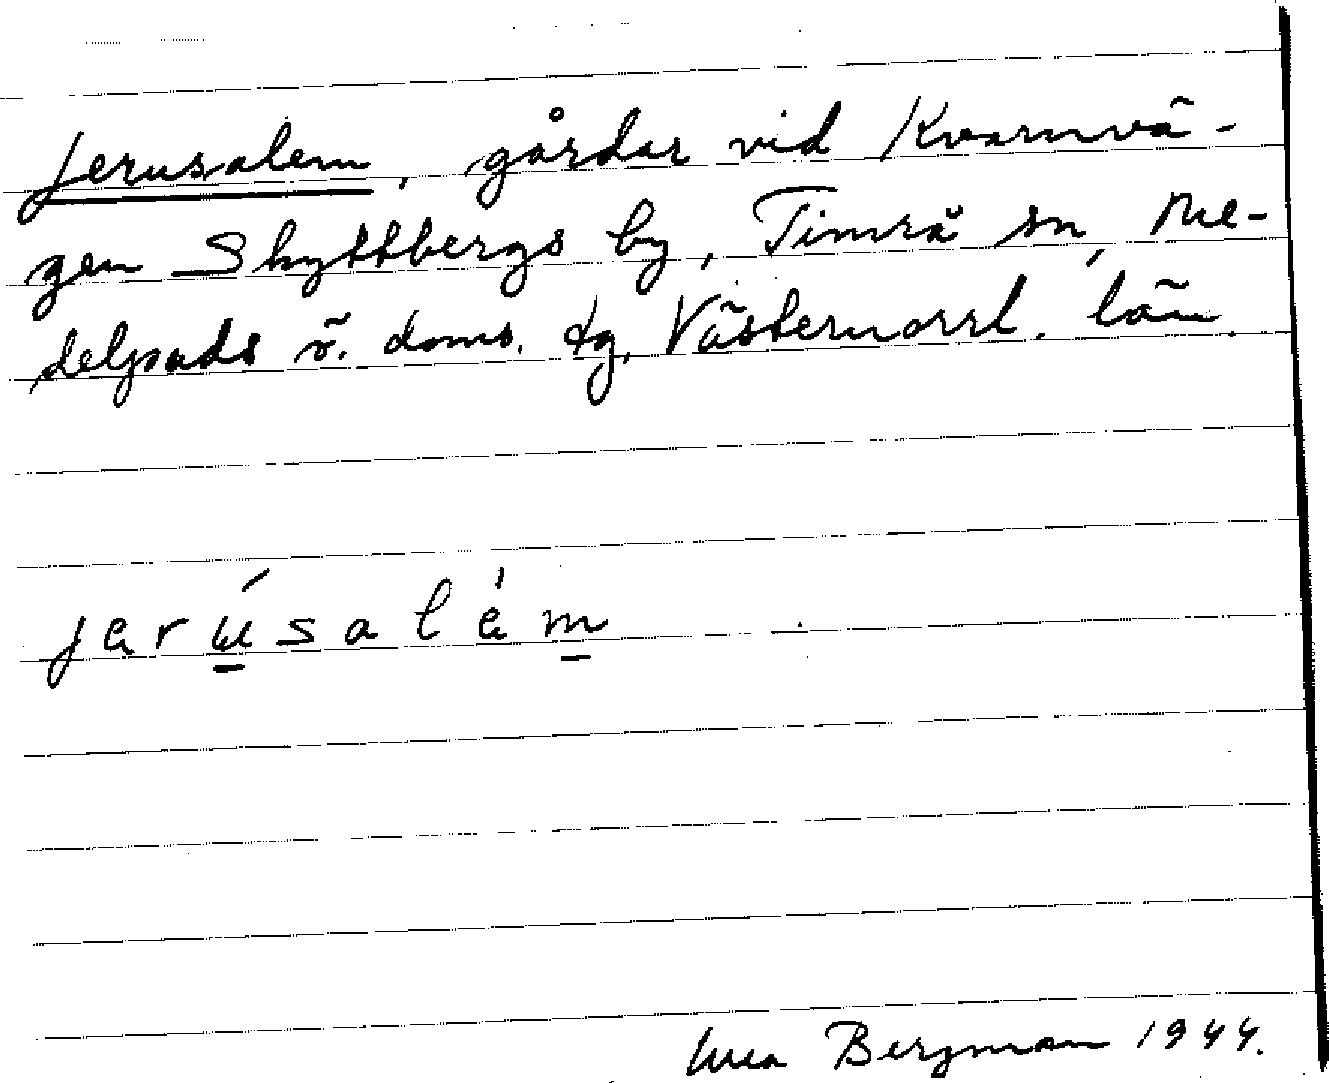 Jerusalem, gårdar vid Kvarnvä-
gen Skyttbergs by, Timrå sn, Me-
delpads ö. doms. dg. Västernorrl. län.
jerúsalém
Bergman 1944.